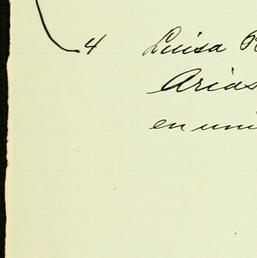 4 Luisa R
Arias
en uni